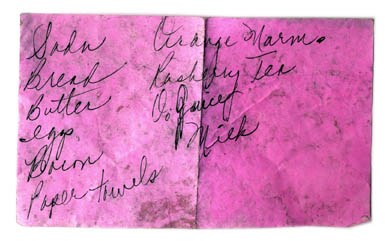 Soda
Bread
Butter
eggs
Bacon
Paper towels
Orange Marm.
Rasberry Tea
O. Juice
Milk